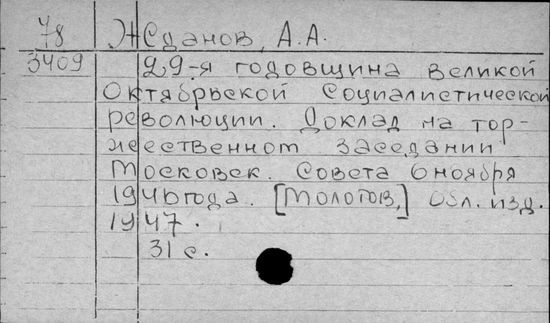 78 Жданов, А.А.
3409 29-я годовщина великой
Октябрьской социалистической
революции. Доклад на тор-
жественном заседании
Московск. Совета 6 ноября
1946 года. [Молотов,] Обл. изд.
1947.
31 с.